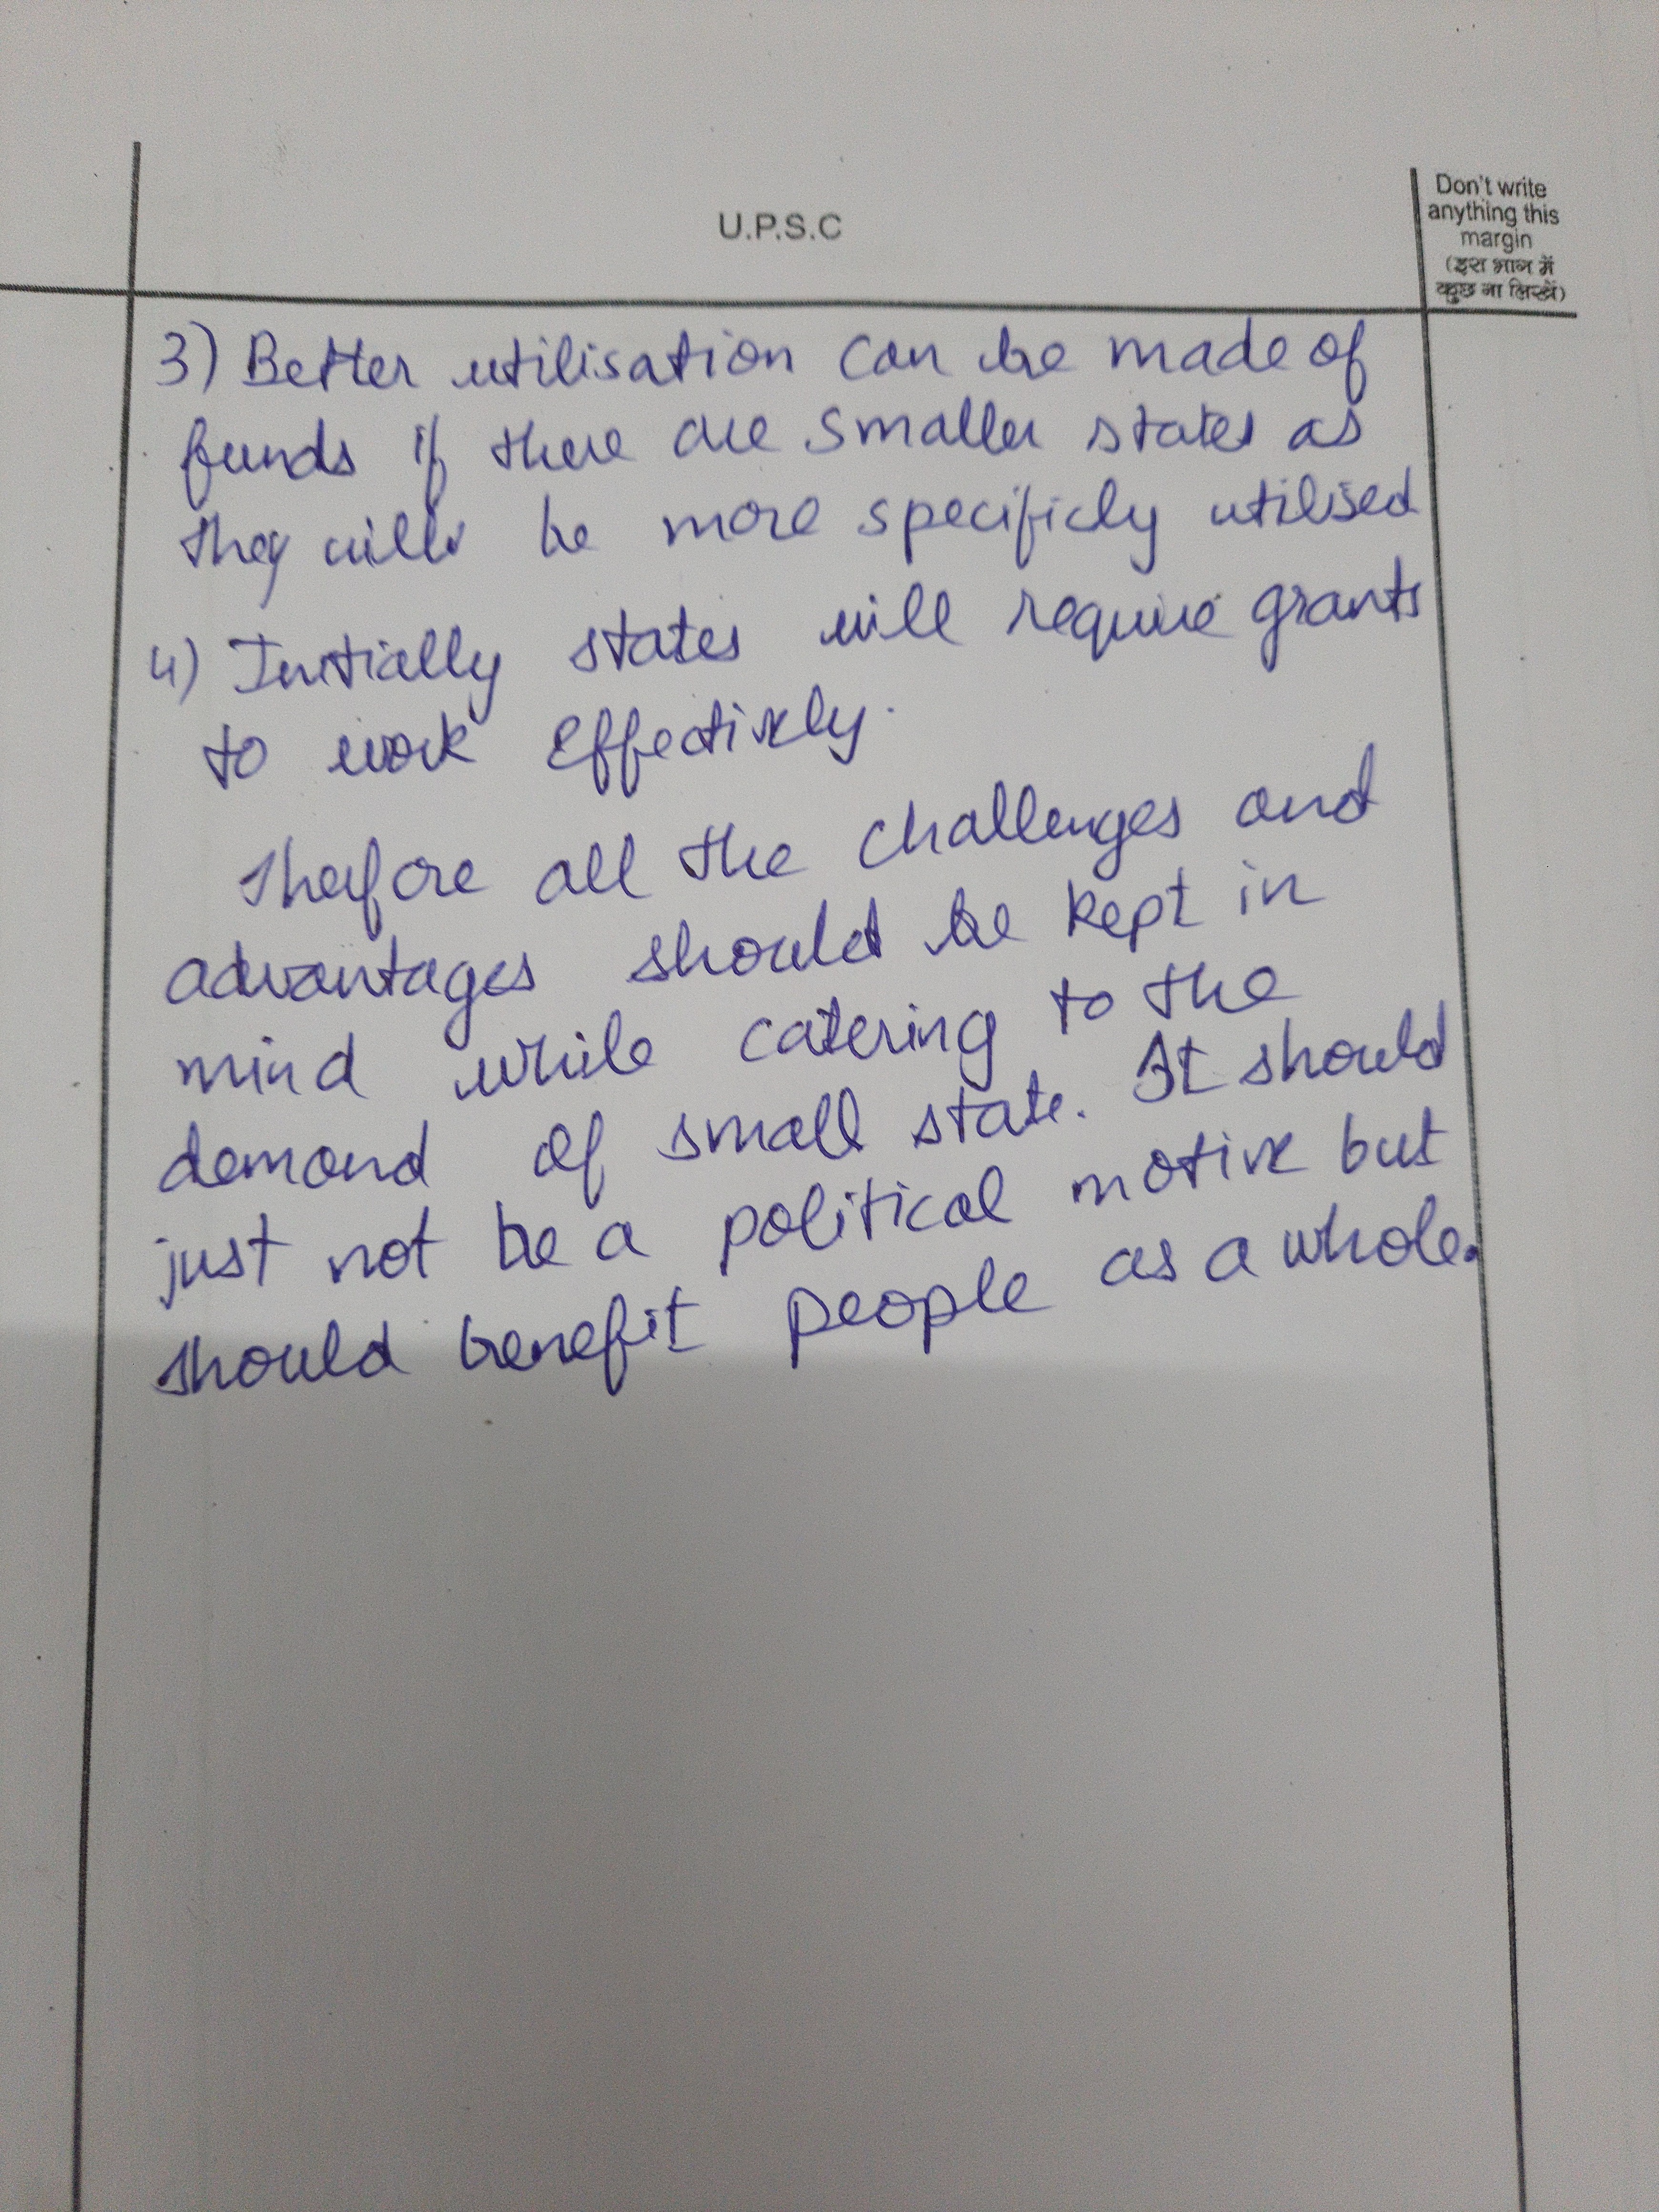 U.P.S.C
Don't write
anything this
margin
(इस भाग में
कुछ ना लिखें)
3) Better utilisation can be made of
funds if there are smaller states as
they will be more specificly utilised
4) Initially states will require grants
to work effectively.
Therfore all the challenges and
advantages should be kept in
mind while catering to the
demand of small state. It should
just not be a political motive but
should benefit people as a whole.